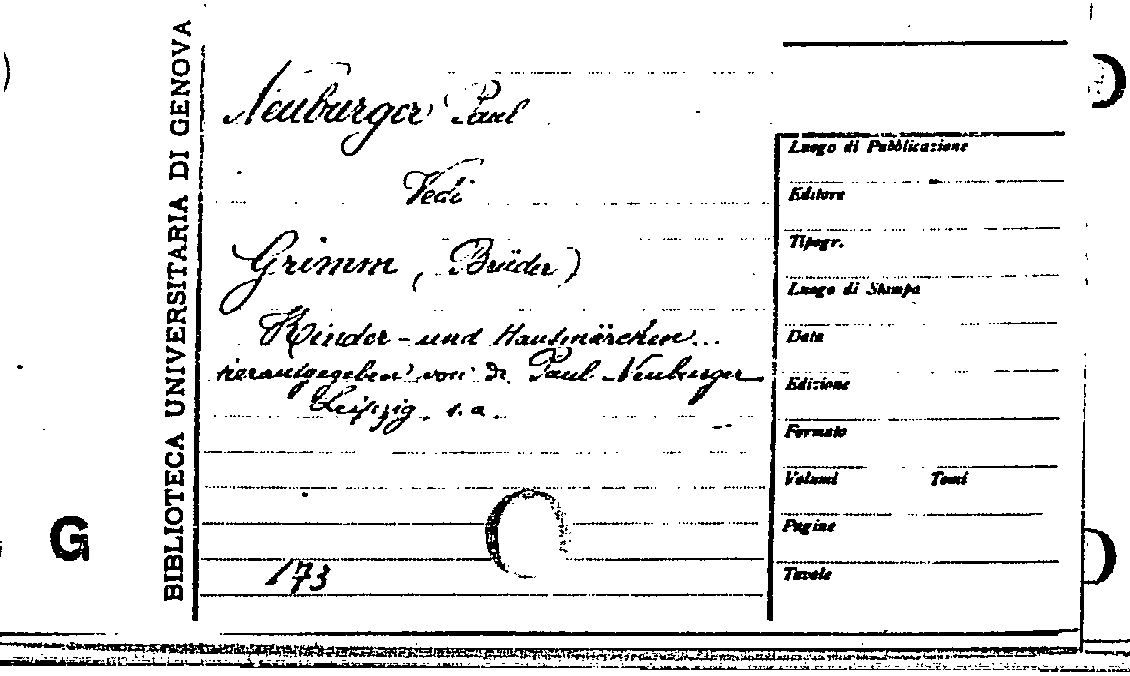 BIBLIOTECA UNIVERSITARIA DI GENOVA
Neuburger Paul
Vedi
Grimm, (Brüder)
Kinder- und Hausmärchen...
herausgegeben von dr Paul Neuburger
Leipzig, s.a.
173
G
Luogo di Pubblicazione
Editore
Tipogr.
Luogo di Stampa
Data
Edizione
Formato
Volumi Tomi
Pagine
Tavole